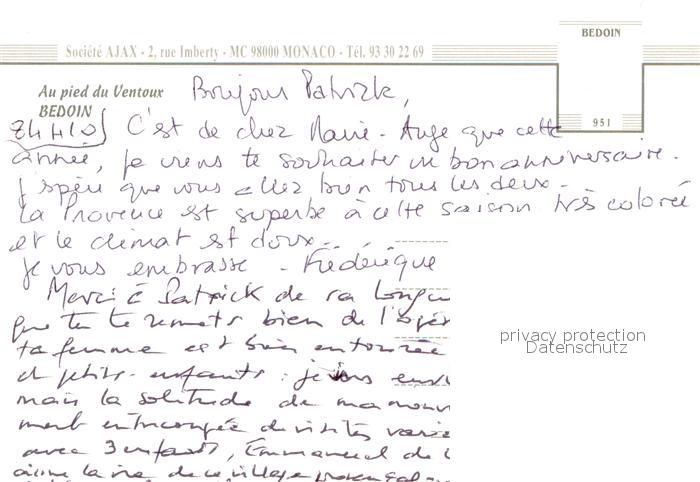 BEDOIN
Société AJAX - 2, rue Imberty - MC 98000 MONACO - Tél. 93 30 22 69
951
Au pied du Ventoux
BEDOIN
Bonjour Patrick,
C'est de chez Marie-Ange que cette
année, je viens te souhaiter un bon anniversaire.
J'espère que vous allez bien tous les deux.
La Provence est superbe à cette saison très colorée
et le climat est doux...
Je vous embrasse - Frédérique
Merci à Patrick de sa longue
que tu te remets bien de l'opér
ta femme est bien entourée
et petits-enfants : je vous
mais la solitude de ma
ment entrecoupée de visites
avec 3 enfants, Emmanuel de
aime la vie de ce village provençal
privacy protection
Datenschutz